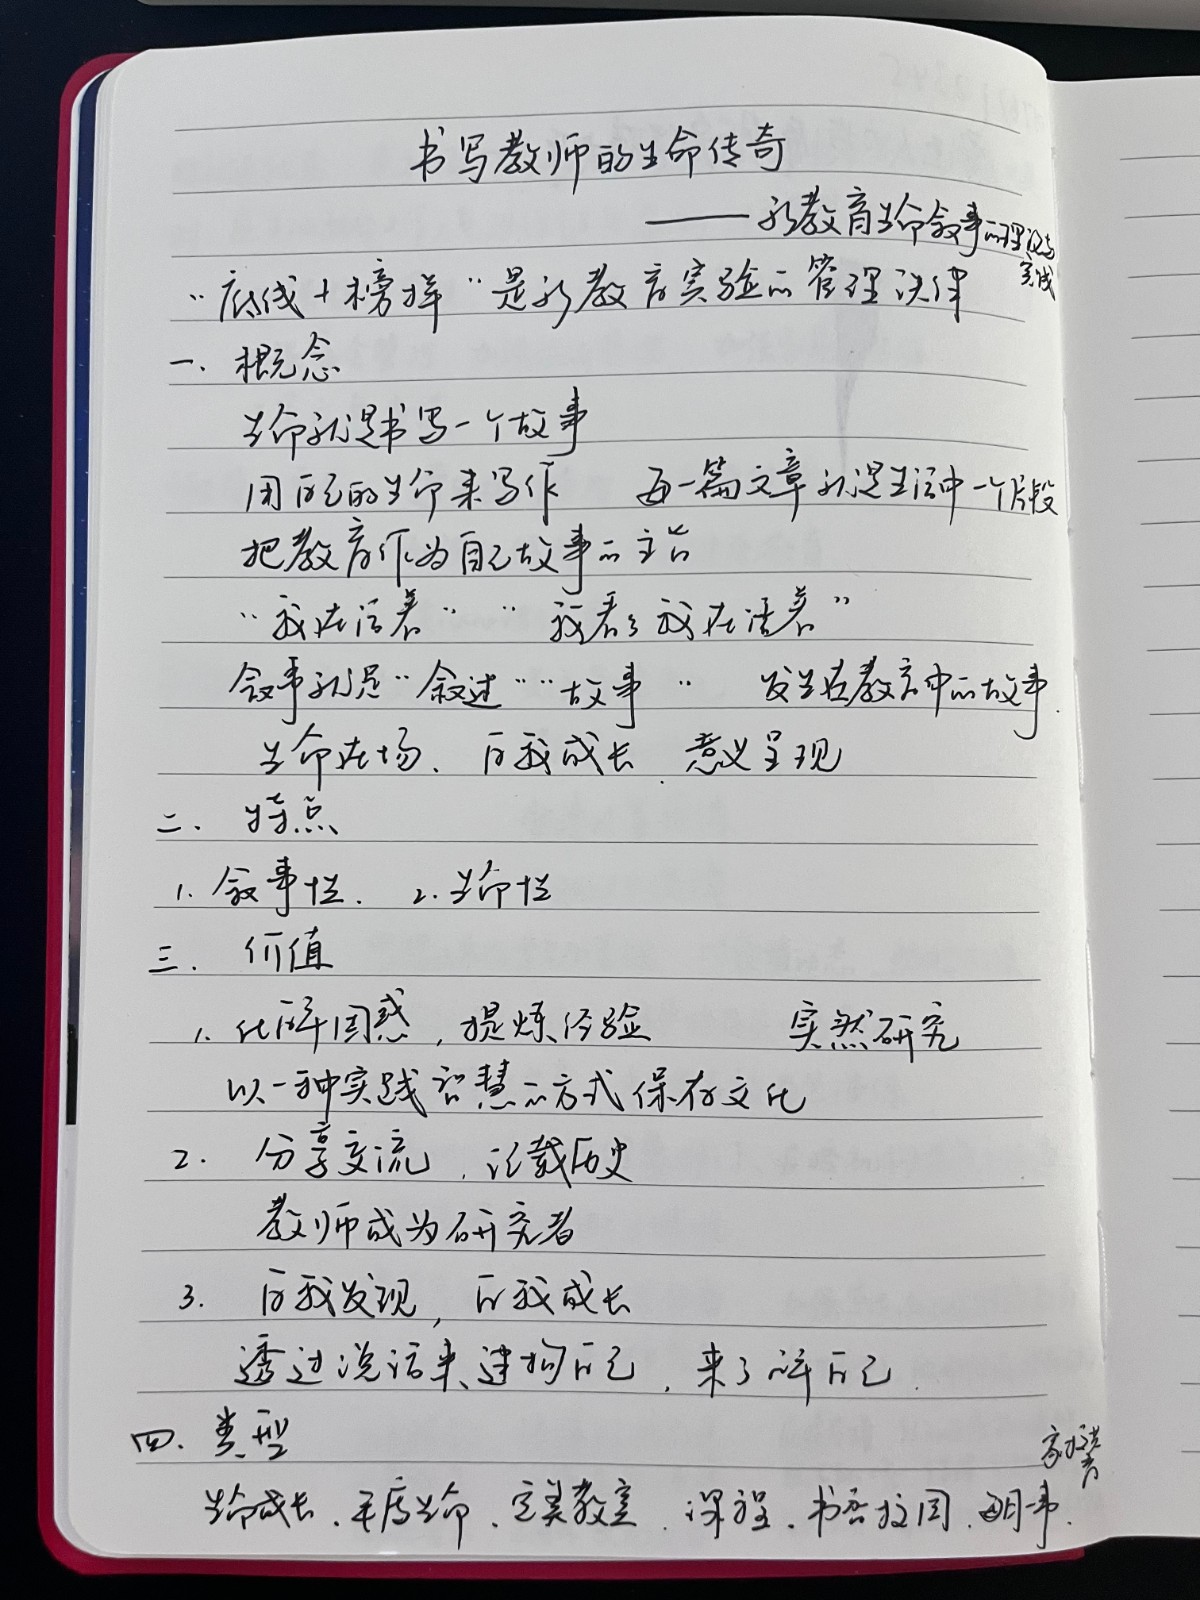 书写教师的生命传奇
——新教育生命叙事的理论与
实践
“底线+榜样”是新教育实验的管理法律
一、概念
生命就是书写一个故事
用自己的生命来写作 每一篇文章就是生活中一个片段
把教育作为自己故事的主旨
“我在活着” “我看了我在活着”
叙事就是“叙述”“故事” 发生在教育中的故事.
生命在场、自我成长、意义呈现
二、特点
1. 叙事性. 2. 生命性
三、价值
1. 化解困惑,提炼经验 实然研究
以一种实践智慧的方式保存文化
2. 分享交流,记载历史
教师成为研究者
3. 自我发现,自我成长
透过说话来建构自己,来了解自己.
四、类型
家校共育
生命成长、年度生命、完美教室、课程、书香校园、每月一事.